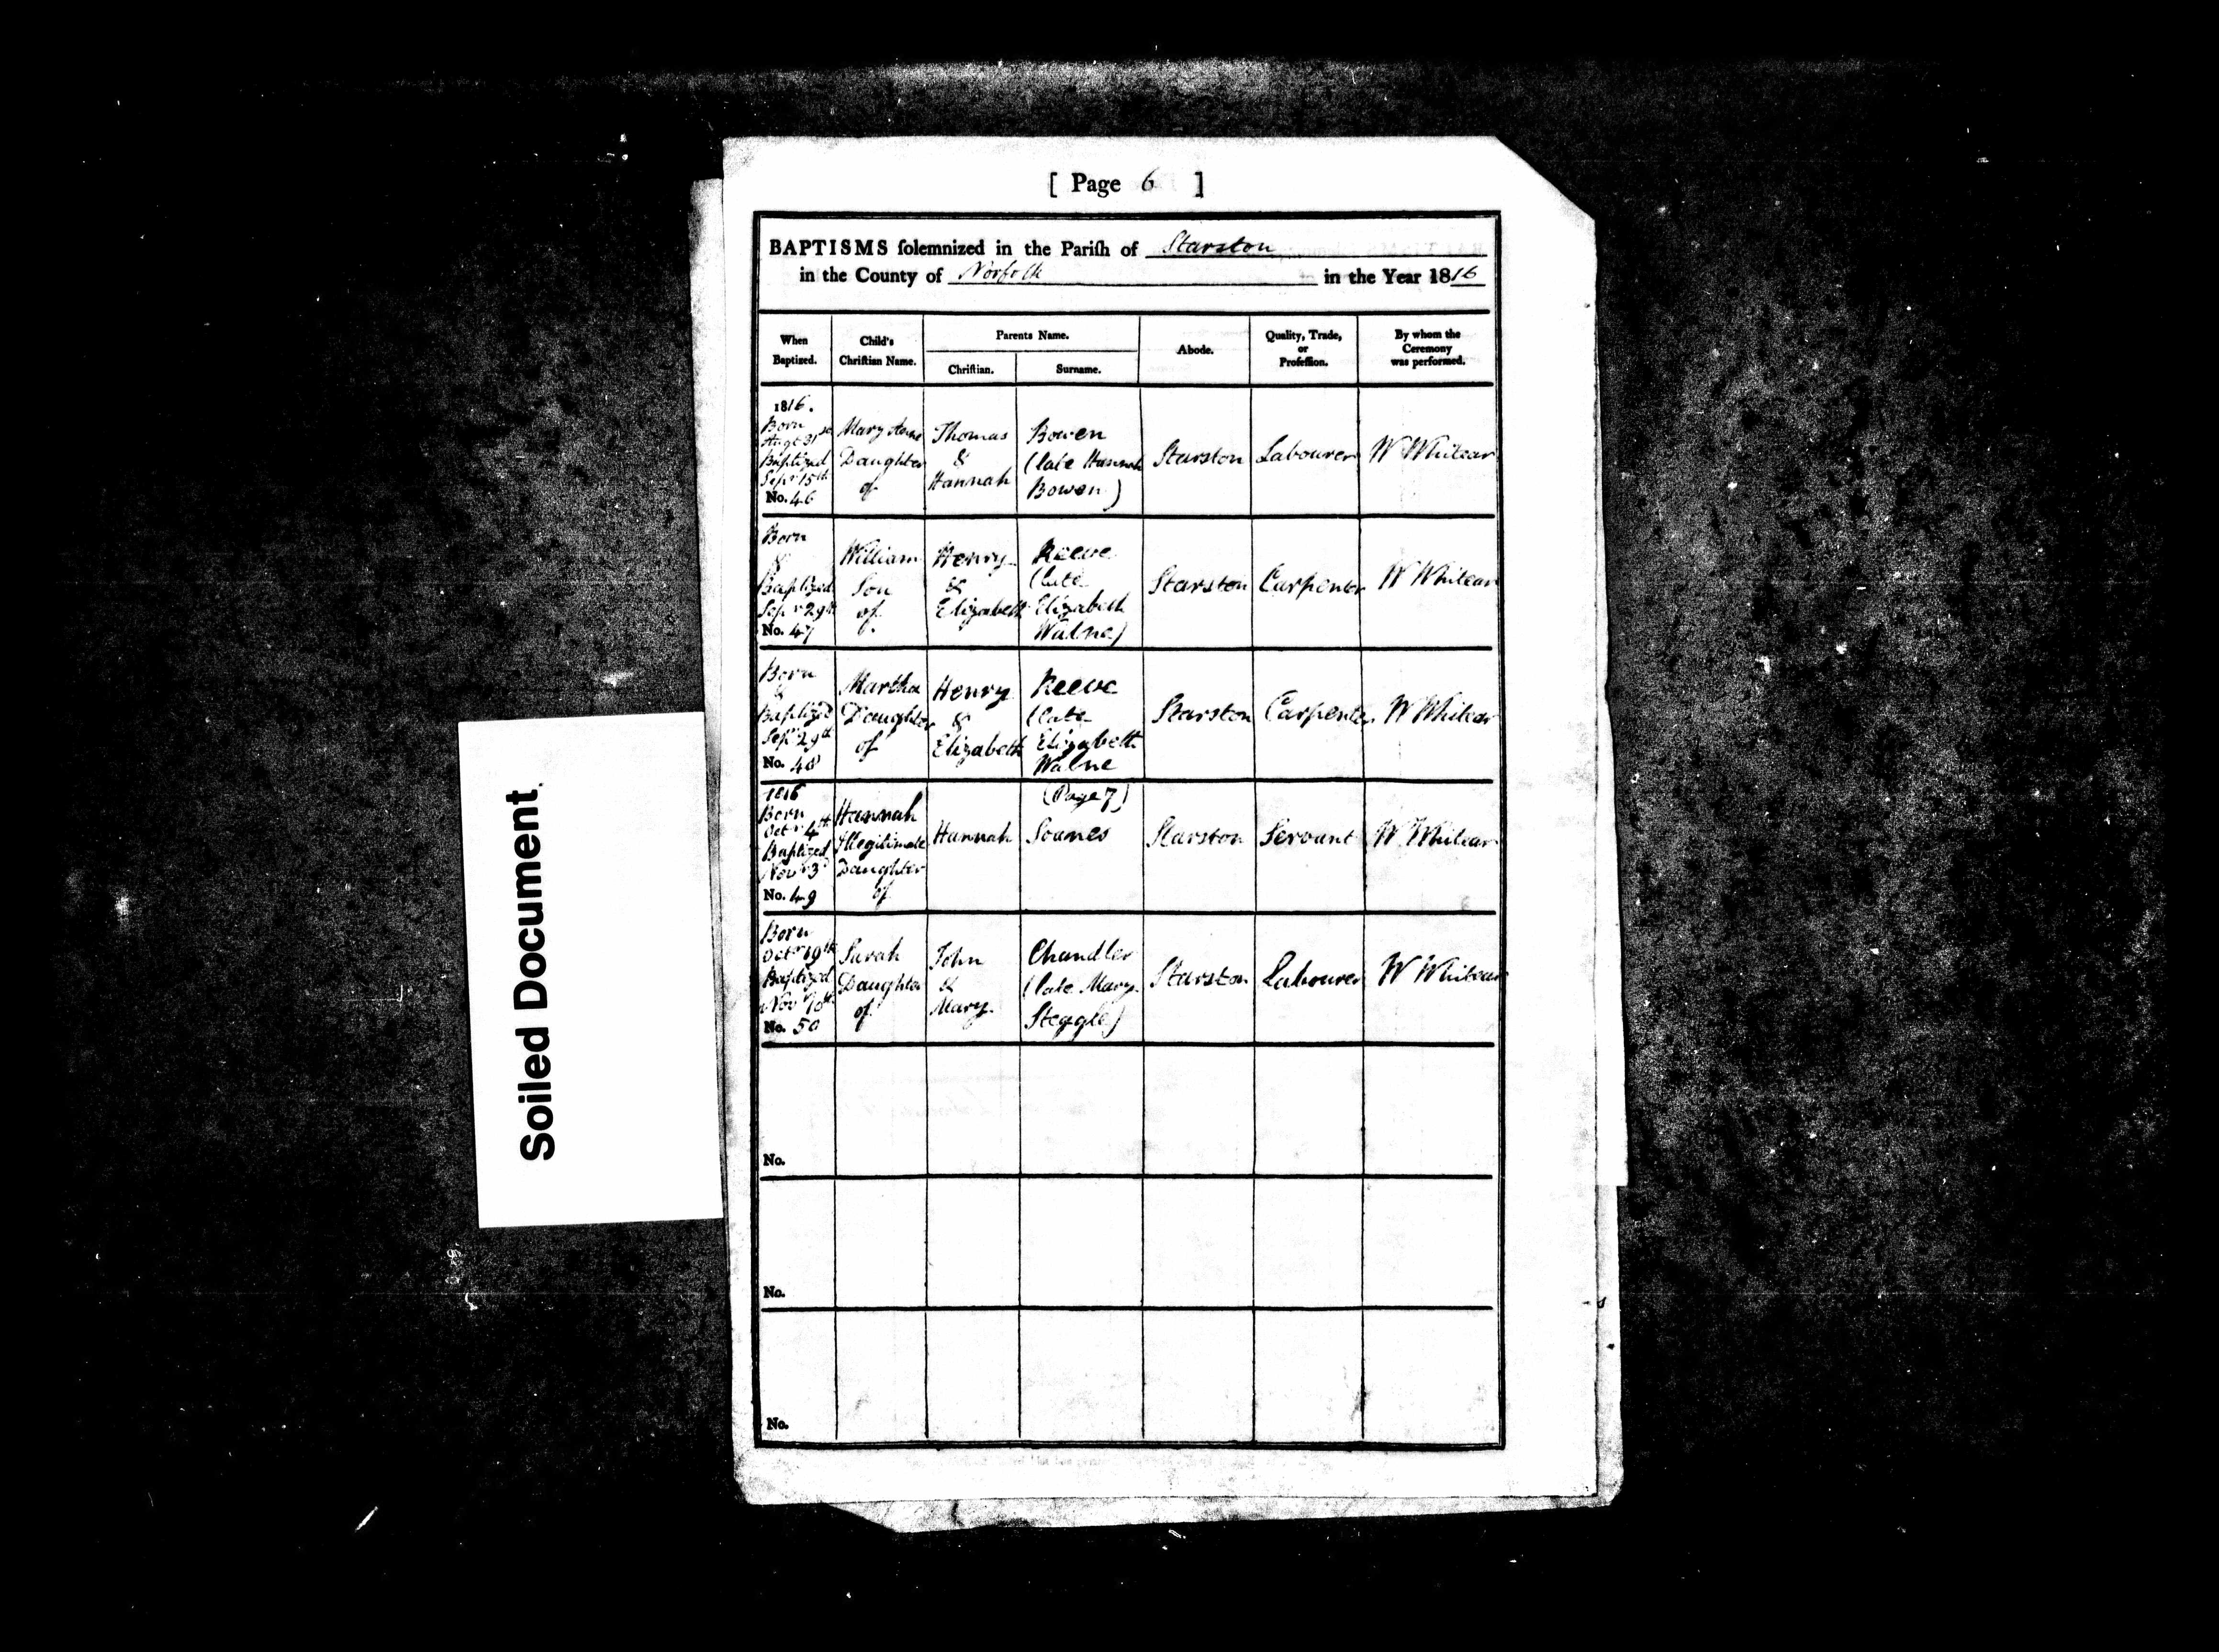 [ Page 6 ]
BAPTISMS ſolemnized in the Pariſh of Starston
in the County of Norfolk in the Year 1816
When
Baptized.
Child's
Chriſtian Name.
Parents Name.
Chriſtian.
Surname.
Abode.
Quality, Trade,
or
Profeſſion.
By whom the
Ceremony
was performed.
1816.
Born
Augt 31st
Baptized
Sepr 15th
No. 46
Mary Anne
Daughter
of
Thomas
&
Hannah
Bowen
(late Hannah
Bowen)
Starston
Labourer
W Whitear
Born
&
Baptized
Sepr 29th
No. 47
William
Son
of
Henry
&
Elizabeth
Reeve
(late
Elizabeth
Walne)
Starston
Carpenter
W Whitear
Born
&
Baptized
Sepr 29th
No. 48
Martha
Daughter
of
Henry
&
Elizabeth
Reeve
(late
Elizabeth
Walne
Starston
Carpenter
W Whitear
1816
Born
Octr 4th
Baptized
Novr 3d
No. 49
Hannah
Illegitimate
Daughter
of
Hannah
(Page 7)
Soames
Starston
Servant
W Whitear
Born
Octr 19th
Baptized
Novr 10th
No. 50
Sarah
Daughter
of
John
&
Mary
Chandler
(late Mary
Steggle)
Starston
Labourer
W Whitear
No.
No.
No.
Soiled Document